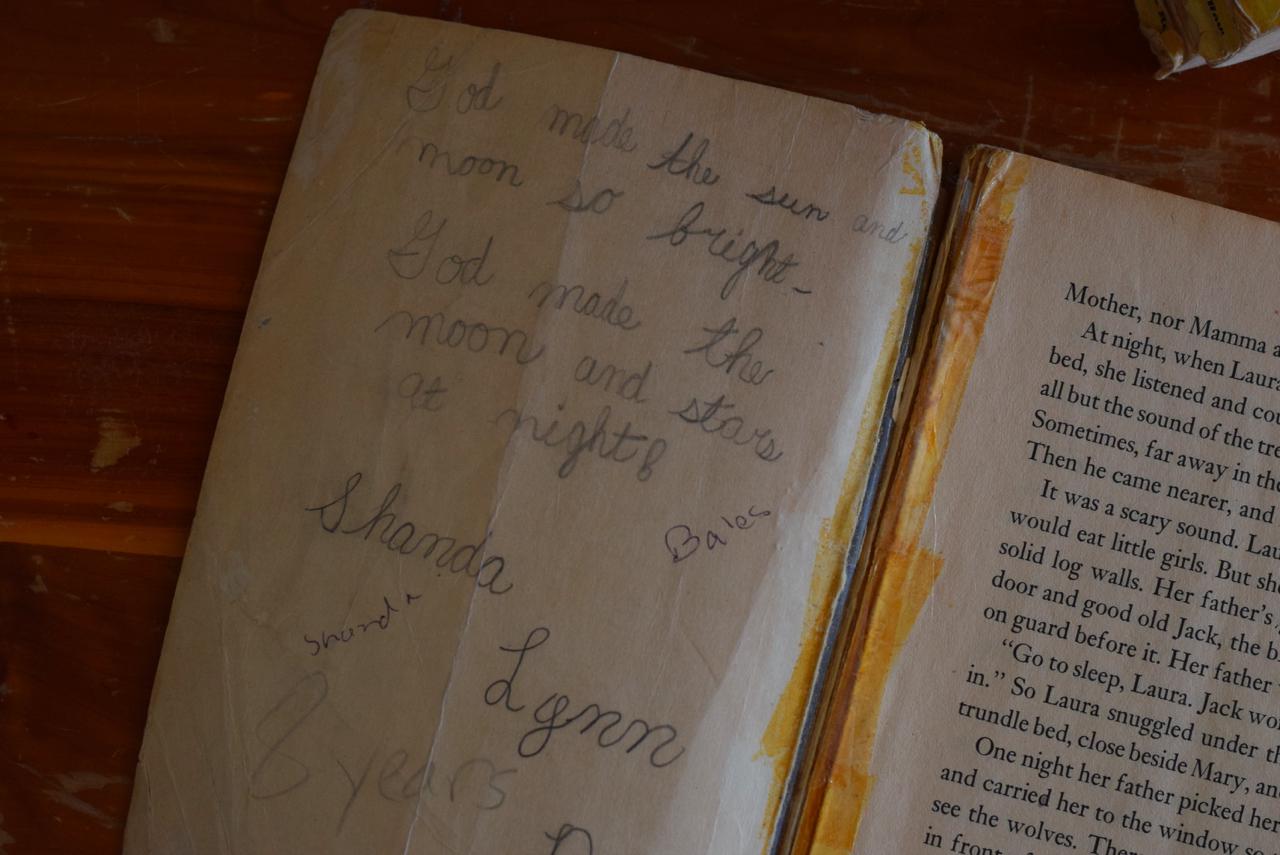 God made the sun and
moon so bright-
God made the
moon and stars
at night
Shanda
Bales
Shanda
Lynn
8 years
Mother, nor Mamma a
At night, when Laura
bed, she listened and cou
all but the sound of the tre
Sometimes, far away in the
Then he came nearer, and
It was a scary sound. Lau
would eat little girls. But she
solid log walls. Her father's
door and good old Jack, the b
on guard before it. Her father
"Go to sleep, Laura. Jack wo
in." So Laura snuggled under th
trundle bed, close beside Mary, an
One night her father picked her
and carried her to the window so
see the wolves. Ther
in front